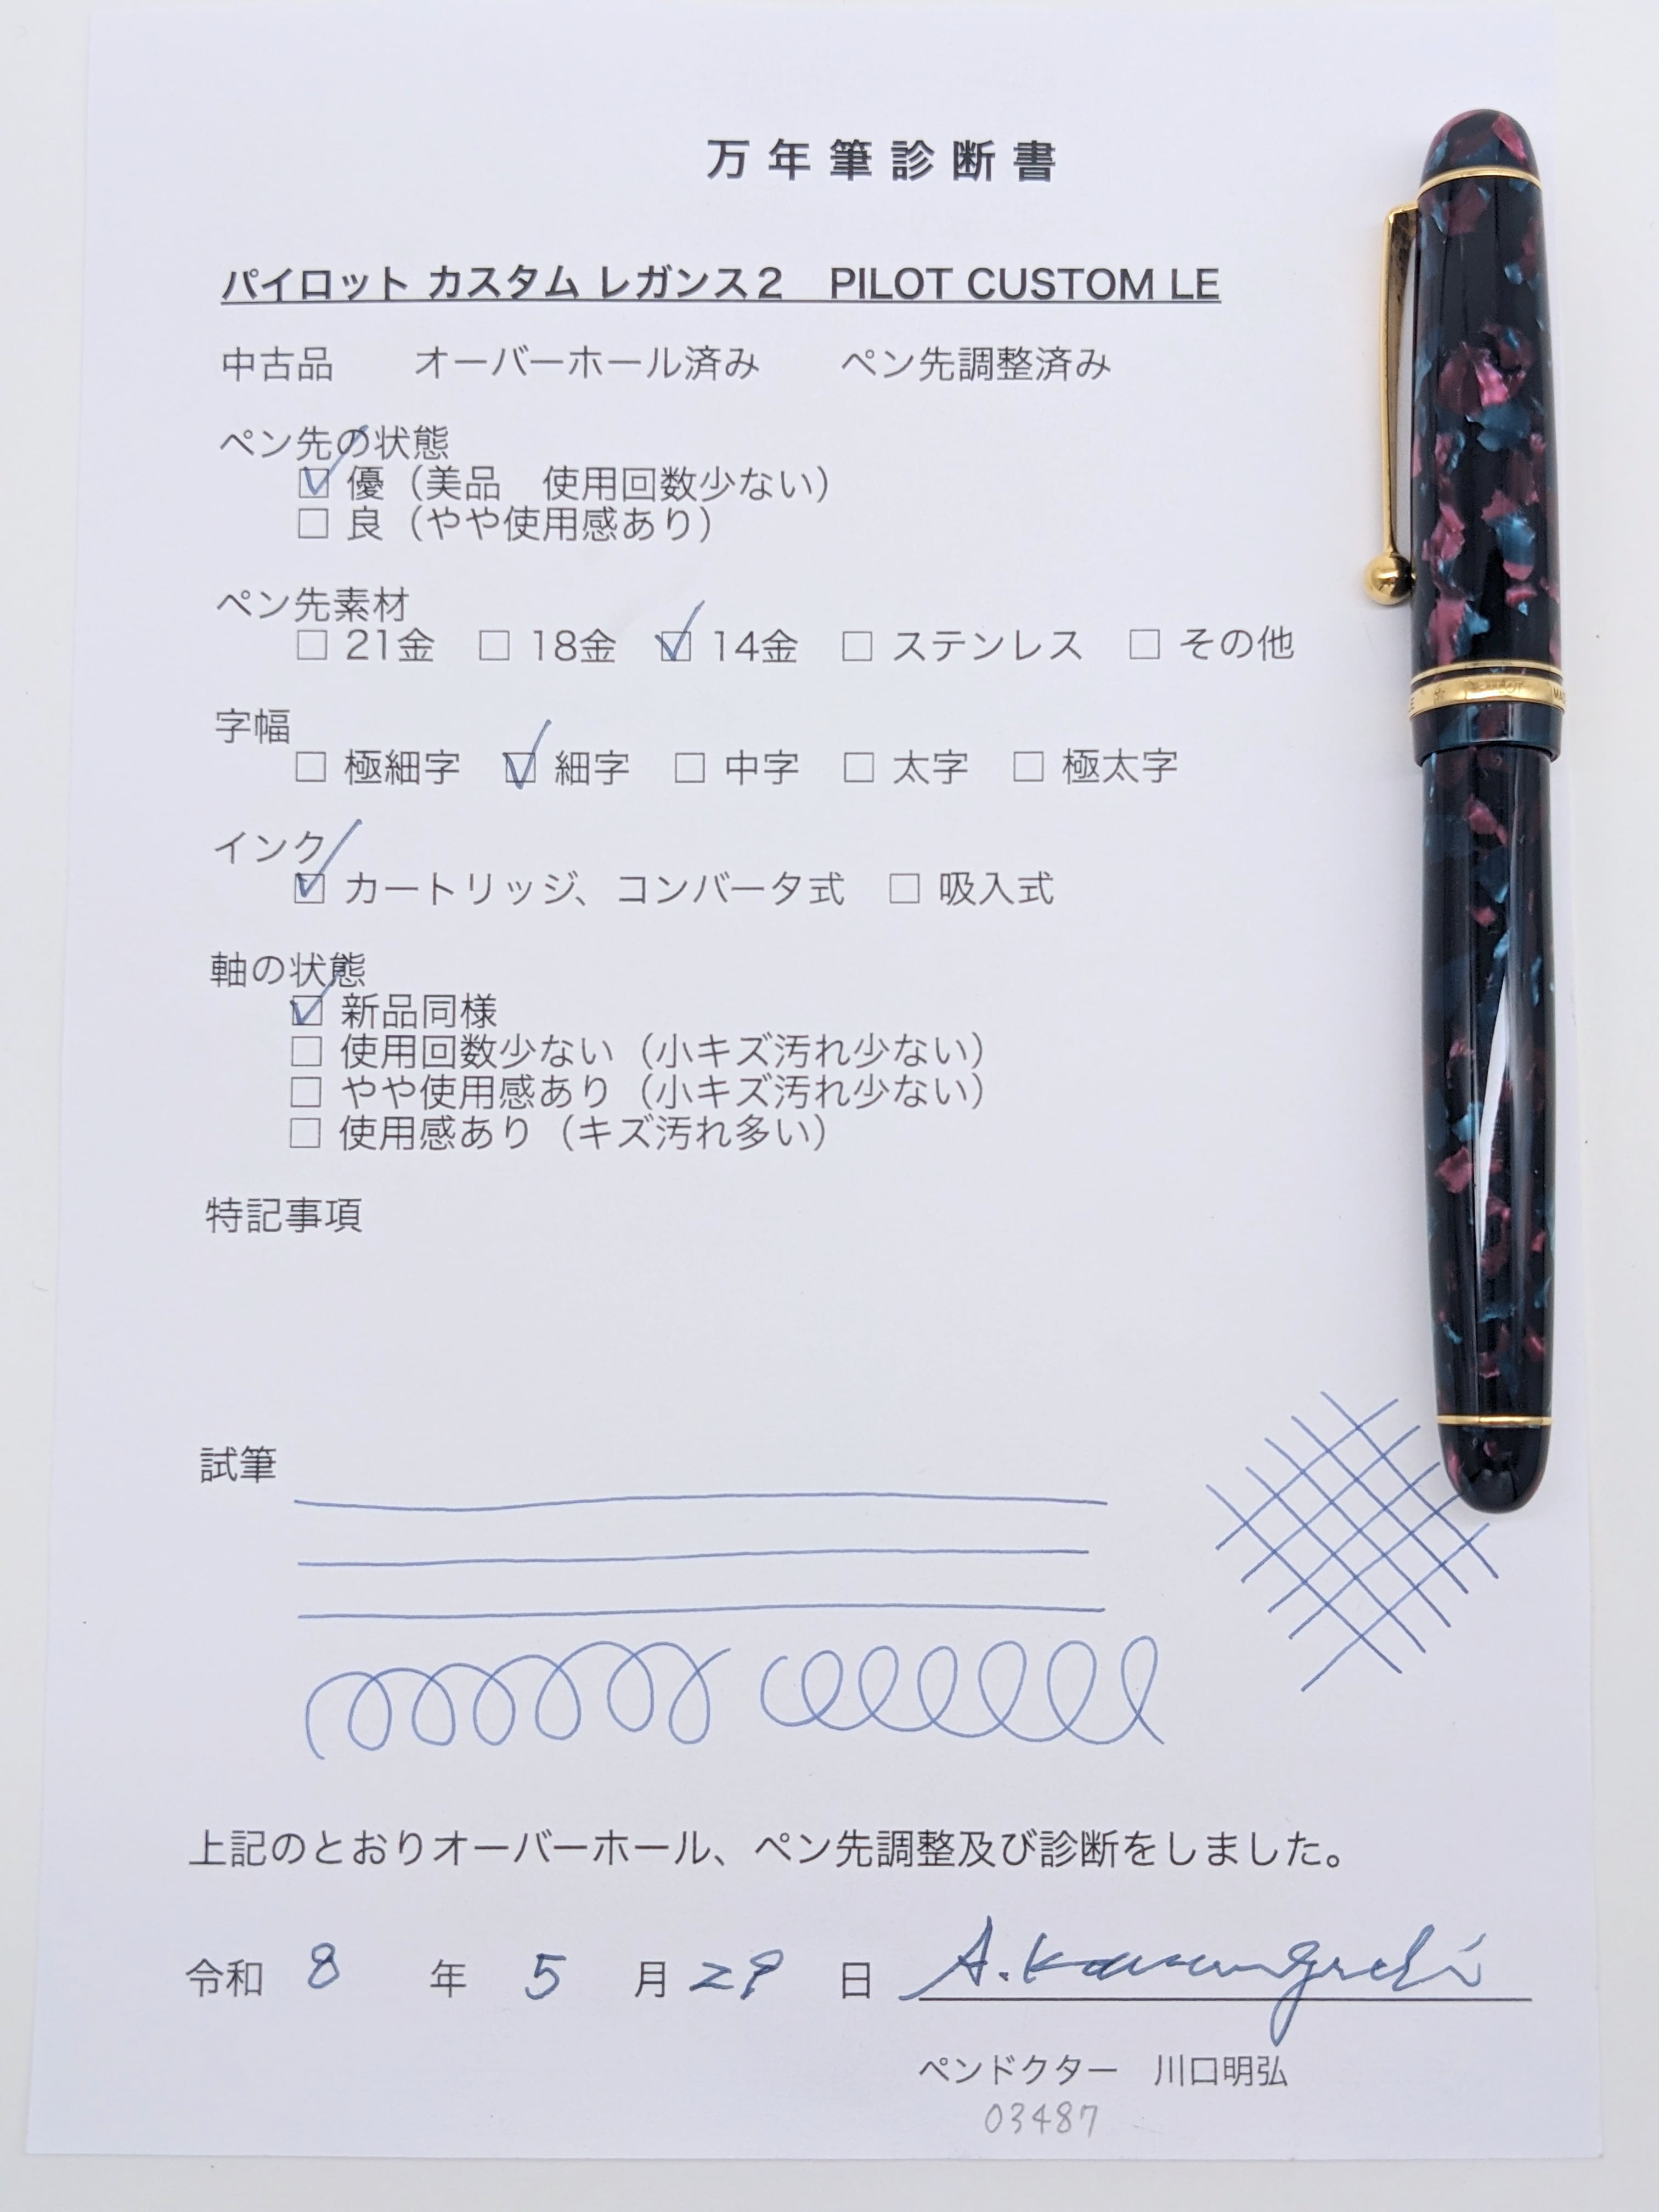 万年筆診断書
パイロット カスタム レガンス2　PILOT CUSTOM LE
中古品　　オーバーホール済み　　ペン先調整済み
ペン先の状態
☑ 優（美品　使用回数少ない）
□ 良（やや使用感あり）
ペン先素材
□ 21金　□ 18金　☑ 14金　□ ステンレス　□ その他
字幅
□ 極細字　☑ 細字　□ 中字　□ 太字　□ 極太字
インク
☑ カートリッジ、コンバータ式　□ 吸入式
軸の状態
☑ 新品同様
□ 使用回数少ない（小キズ汚れ少ない）
□ やや使用感あり（小キズ汚れ少ない）
□ 使用感あり（キズ汚れ多い）
特記事項
試筆
上記のとおりオーバーホール、ペン先調整及び診断をしました。
令和 8 年 5 月 29 日 A. Kawaguchi
ペンドクター　川口明弘
03487